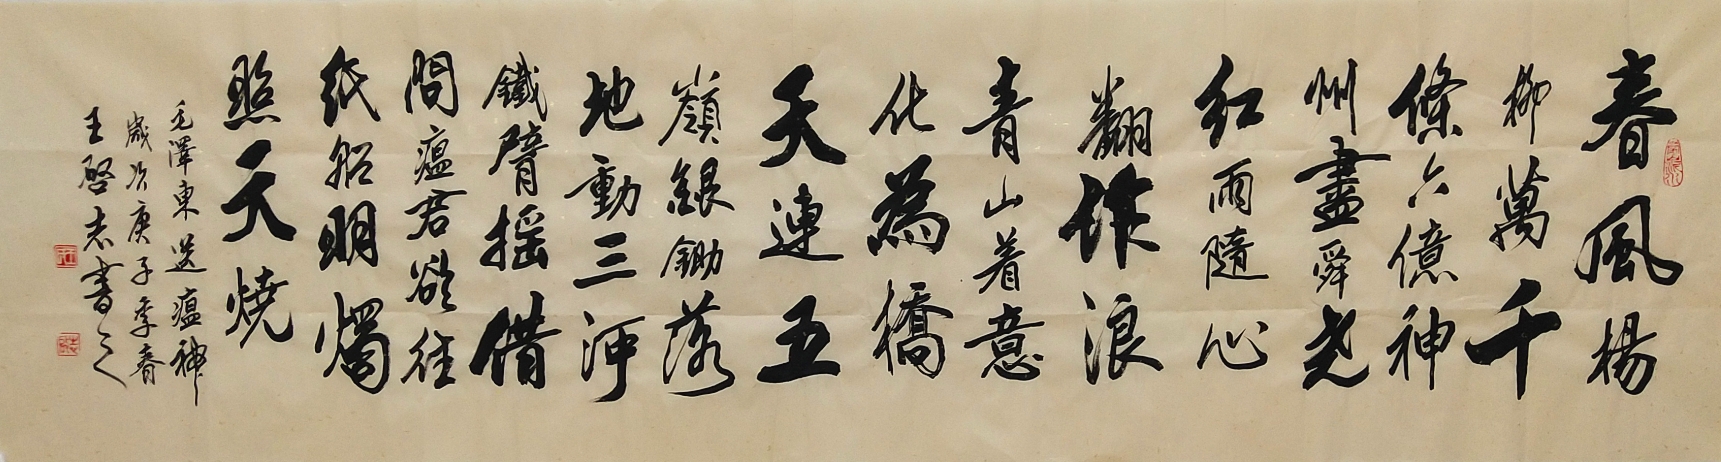 春風楊
柳萬千
條六億神
州盡舜堯
紅雨隨心
翻作浪
青山着意
化為橋
天連五
嶺銀鋤落
地動三河
鐵臂搖借
問瘟君欲往
紙船明燭
照天燒
毛澤東送瘟神
歲次庚子季春
王啓志書之